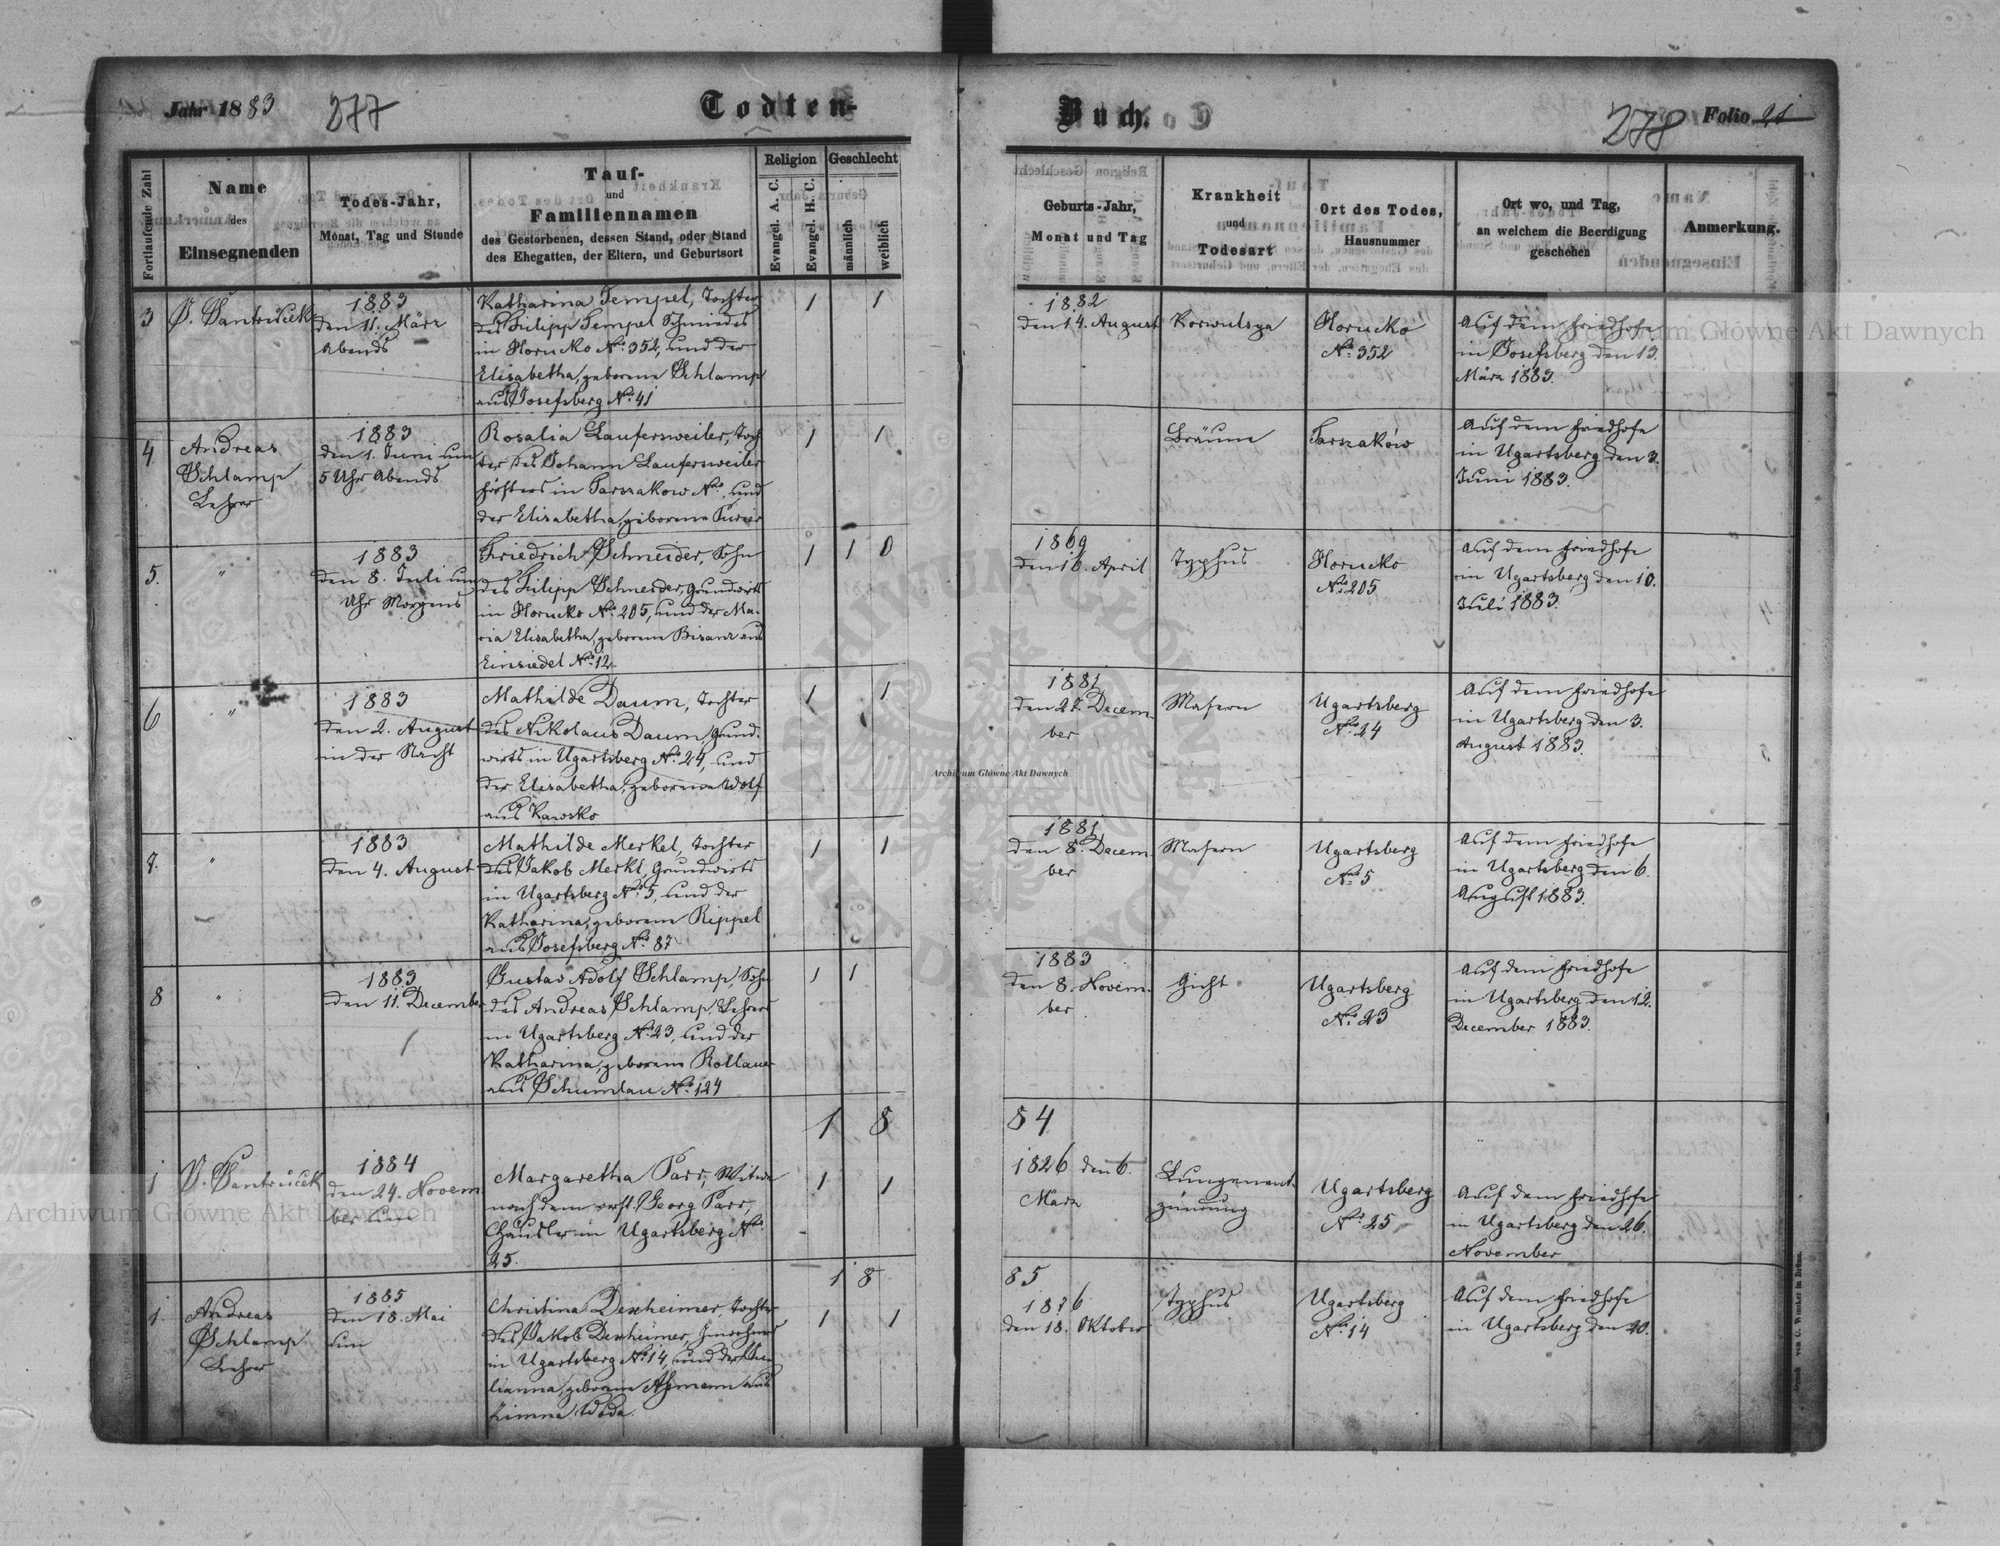 Jahr 1883
277
Todten-
Buch.
278
Folio 21
Fortlaufende Zahl
Name
des
Einsegnenden
Todes-Jahr,
Monat, Tag und Stunde
Tauf-
und
Familiennamen
des Gestorbenen, dessen Stand, oder Stand
des Ehegatten, der Eltern, und Geburtsort
Religion
Evangel. A. C.
Evangel. H. C.
Geschlecht
männlich
weiblich
Geburts-Jahr,
Monat und Tag
Krankheit
und
Todesart
Ort des Todes,
Hausnummer
Ort wo, und Tag,
an welchem die Beerdigung
geschehen
Anmerkung.
3
1883
den 11. März
Abends
Katharina Tempel, Tochter
des Filipp Tempel Schmiedes
in Horucko No 352, und der
Elisabetha, geborene Schlamp
aus Josefsberg No 41
1
1
1882
den 14. August
Horucko
No 352
Auf dem Friedhofe
in Josefsberg den 13.
März 1883.
4
Andreas
Schlamp
Lehrer
1883
den 1. Juni um
5 Uhr Abends
Rosalia Laufersweiler, Toch
ter des Johann Laufersweiler
in Tarzakow No , und
der Elisabetha, geborene
1
1
Bräune
Auf dem Friedhofe
in Ugartsberg den 3.
Juni 1883.
5.
"
1883
den 8. Juli um
Uhr Morgens
Friedrich Schneider, Sohn
des Filipp Schneider, Grundwirts
in Horucko No 205, und der Ma-
ria Elisabetha, geborene Bisanz aus
Einsiedel No 12.
1
1
0
1869
den 16. April
Typhus
Horucko
No 205
Auf dem Friedhofe
in Ugartsberg den 10.
Juli 1883.
6
"
1883
den 2. August
in der Nacht
Mathilde Daum, Tochter
des Nikolaus Daum, Grund-
wirts in Ugartsberg No 24, und
der Elisabetha, geborene Wolf
aus Kawsko
1
1
1881
den 27. Decem-
ber
Masern
Ugartsberg
No 24
Auf dem Friedhofe
in Ugartsberg den 3.
August 1883.
7.
"
1883
den 4. August
Mathilde Merkel, Tochter
des Jakob Merkl, Grundwirts
in Ugartsberg No 5, und der
Katharina, geborene Rippel
aus Josefsberg No 87
1
1
1881
den 8. Decem-
ber
Masern
Ugartsberg
No 5
Auf dem Friedhofe
in Ugartsberg den 6.
August 1883.
8
"
1883
den 11. December
Gustav Adolf Schlamp, Sohn
des Andreas Schlamp, Lehrers
in Ugartsberg No 23, und der
Katharina, geborene Rollauer
aus Schumlau No 124
1
1
1883
den 8. Novem-
ber
Gicht
Ugartsberg
No 23
Auf dem Friedhofe
in Ugartsberg den 12.
December 1883.
1 8
84
1
1884
den 24. Novem
ber um
Margaretha Parr, Witwe
nach dem verst. Georg Parr,
in Ugartsberg No
25.
1
1
1826 den 6.
März
Lungenent-
zündung
Ugartsberg
No 25
Auf dem Friedhofe
in Ugartsberg den 26.
November
1 8
85
1.
Andreas
Schlamp
Lehrer
1885
den 18. Mai
um
Christina Dexheimer, Tochter
des Jakob Dexheimer,
in Ugartsberg No 14, und der Ju-
lianna, geborene aus
Zimna Woda.
1
1
1876
den 18. Oktober
Typhus
Ugartsberg
No 14
Auf dem Friedhofe
in Ugartsberg den 20.
Archiwum Główne Akt Dawnych
Archiwum Główne Akt Dawnych
Archiwum Główne Akt Dawnych
Archiwum Główne Akt Dawnych
ARCHIWUM GŁÓWNE AKT DAWNYCH